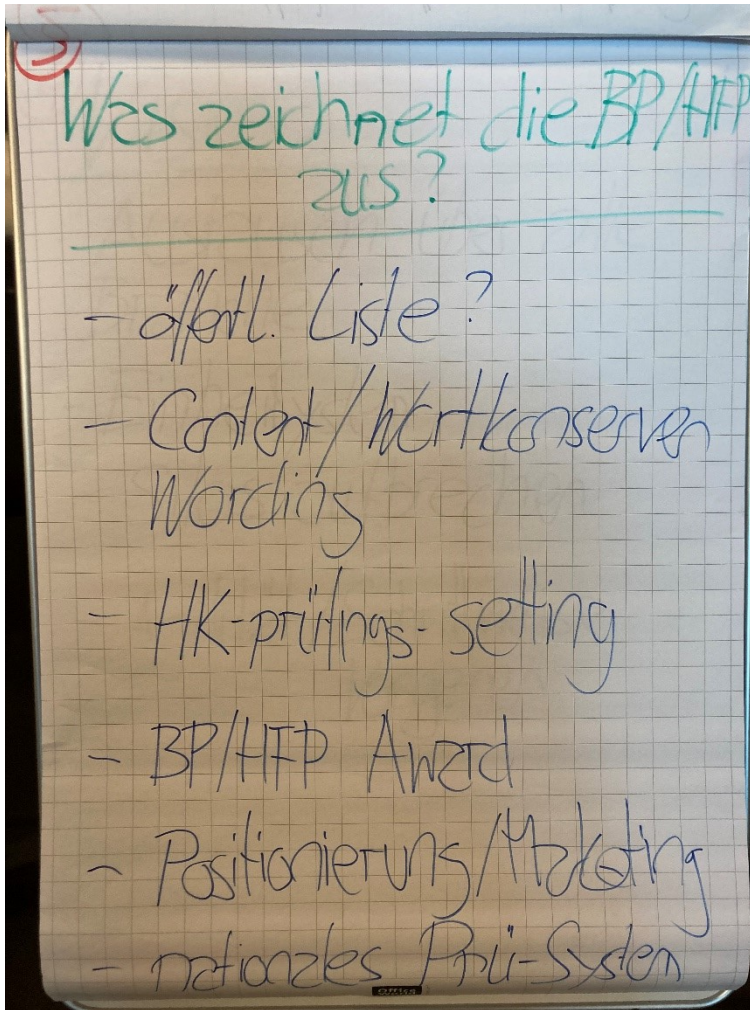 Was zeichnet die BP/HFP
aus?
- öffentl. Liste?
- Content/Wortkonserven
Wording
- HK-prüfngs-setting
- BP/HFP Award
- Positionierung/Marketing
- nationales Prü-System
Office